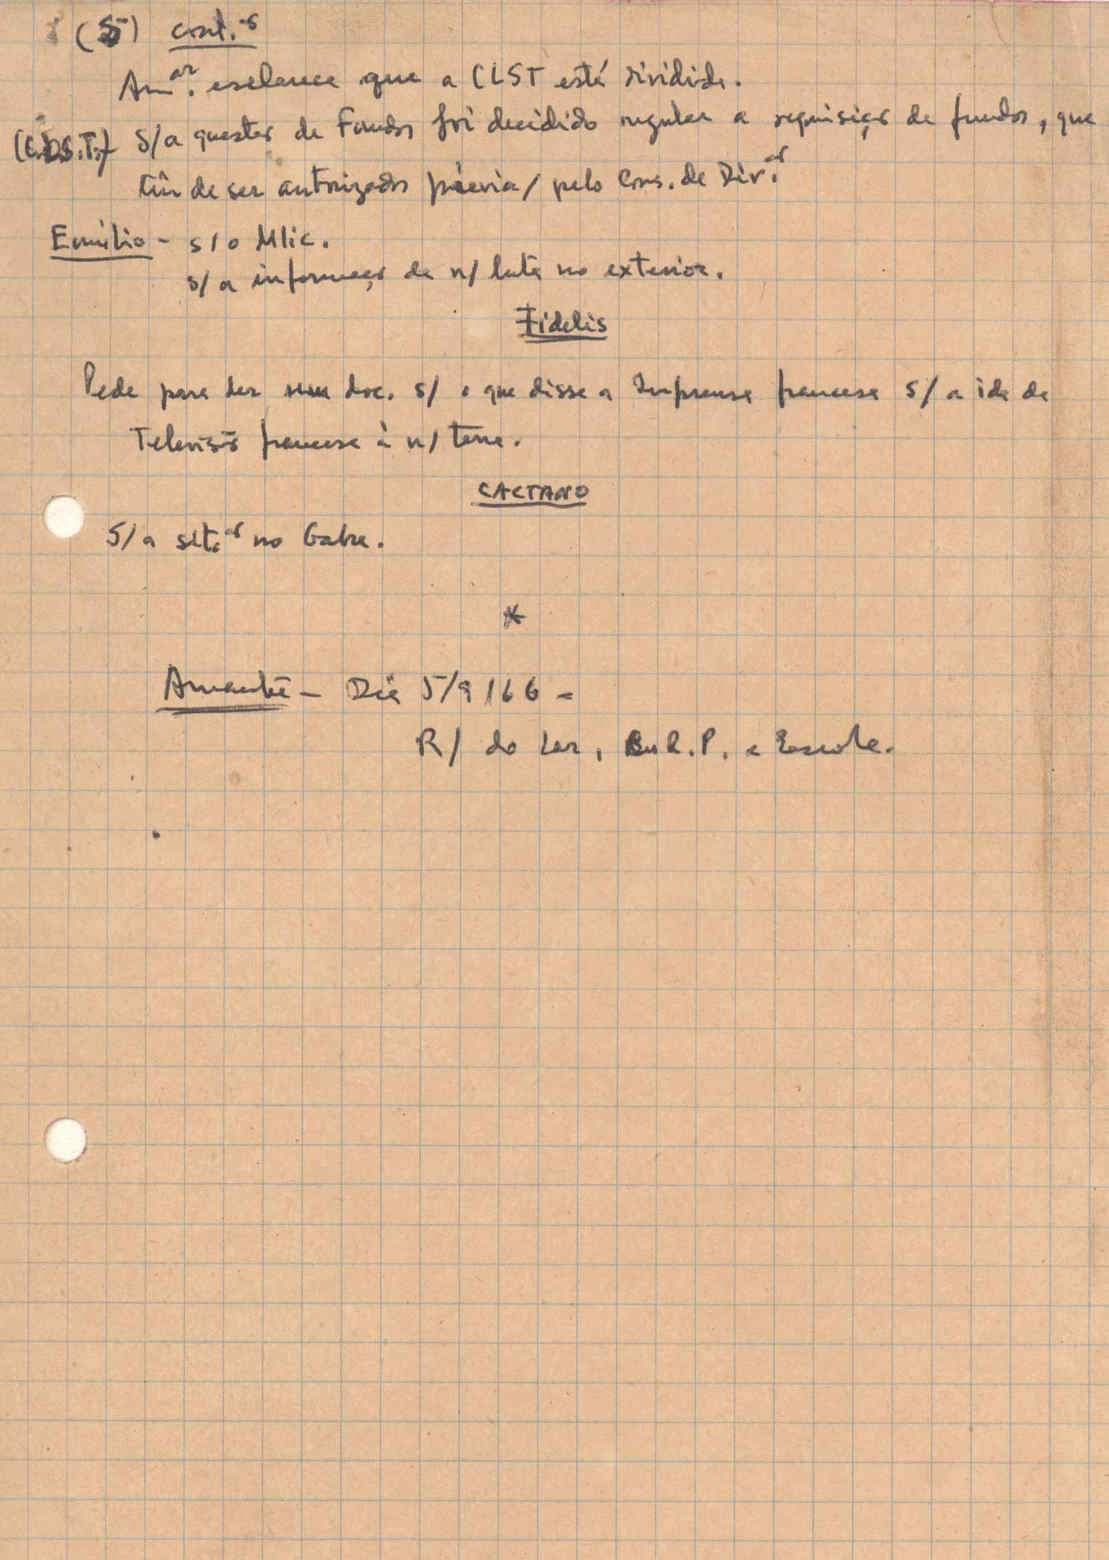 (5) cont.ão
Am.ar esclarece que a CLST está dividida.
(C.D.S.T.) S/a questão de Fundos foi decidido regular a requisição de fundos, que
têm de ser autorizados prévia/ pelo Cons. de Dir.ão
Emílio - s/o Mlic.
s/a informação da n/ luta no exterior.
Fidelis
Pede para ler doc. s/ o que disse a Imprensa francesa s/ a ida da
Televisão francesa à n/ terra.
CAETANO
S/a sit.ão no Gabu.
*
Amanhã - Dia 5/9/66 -
R/ do Lar, Bu R.P. e Escola.